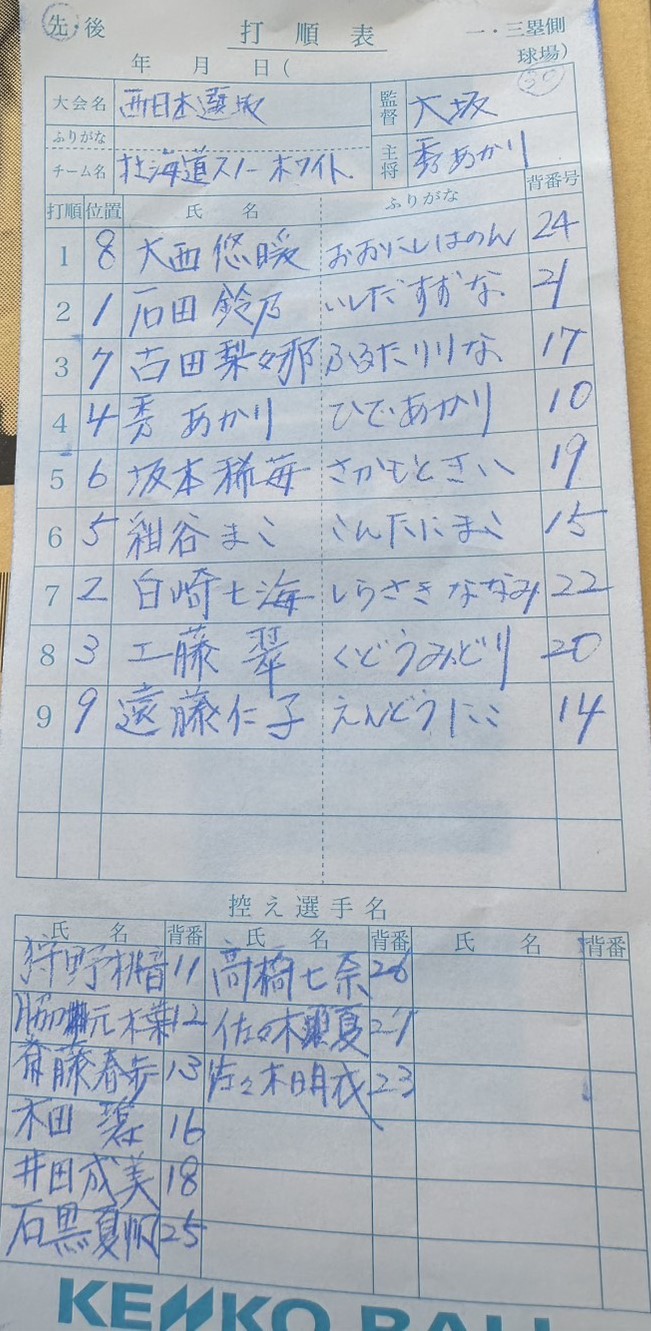 先・後 打順表 一・三塁側
年 月 日( 球場)
大会名 西日本選抜 監督 大坂 30
ふりがな
チーム名 北海道スノーホワイト 主将 秀あかり
打順 位置 氏名 ふりがな 背番号
1 8 大西悠暖 おおにしはのん 24
2 1 石田鈴乃 いしだすずな 21
3 7 古田梨々那 ふるたりりな 17
4 4 秀あかり ひであかり 10
5 6 坂本稀苺 さかもときい 19
6 5 紺谷まこ こんたにまこ 15
7 2 白崎七海 しらさきななみ 22
8 3 工藤翠 くどうみどり 20
9 9 遠藤仁子 えんどうにこ 14
控え選手名
氏名 背番 氏名 背番 氏名 背番
狩野桃音 11 高橋七奈 26
脇元木葉 12 佐々木夏 27
斎藤春歩 13 佐々木明衣 23
木田 16
井田成美 18
石黒夏帆 25
KENKO BALL